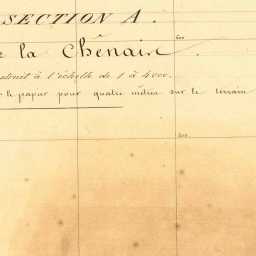 SECTION A.
la Chênaie.
à l'échelle de 1 à 4000.
le papier pour quatre mètres sur le terrain